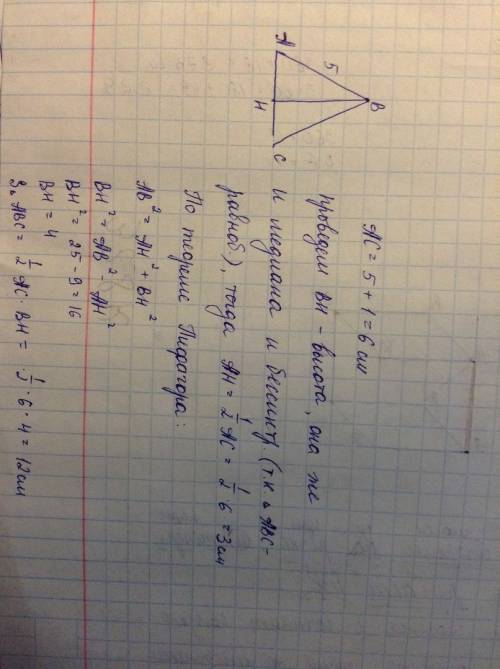 A
5
B
H
C
AC = 5 + 1 = 6 см
проведем BH – высота, она же
и медиана и биссектр. (т.к. ΔABC –
равноб), тогда AH = 1/2 AC = 1/2 · 6 = 3 см
По теореме Пифагора:
AB² = AH² + BH²
BH² = AB² AH²
BH² = 25 – 9 = 16
BH = 4
ABC = 1/2 AC · BH = · 6 · 4 = 12 см